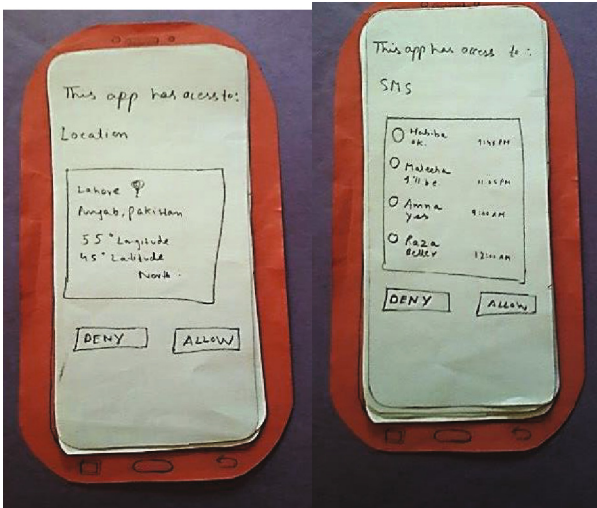 This app has acess to:
Location
Lahore
Punjab, Pakistan
55° Longitude
45° Latitude
North
DENY
ALLOW
This app has access to:
SMS
Habiba
ok.
9:48 PM
Maleeha
I'll be
11:05 PM
Amna
yes
9:00 AM
Raza
Better
12:00 AM
DENY
ALLOW